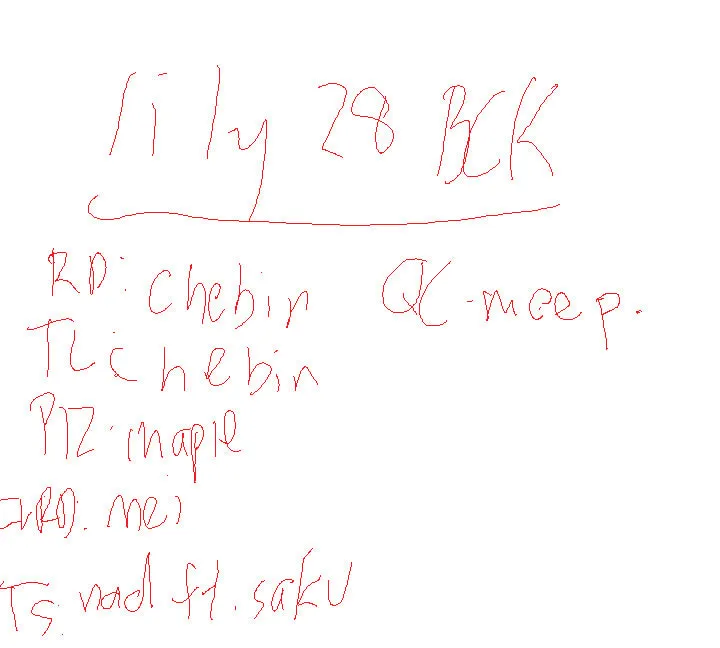 lily 28 BCK
RD: Chebin QC-meep.
TL: Chebin
maple
RD. mei
Ts. nad ft. saku